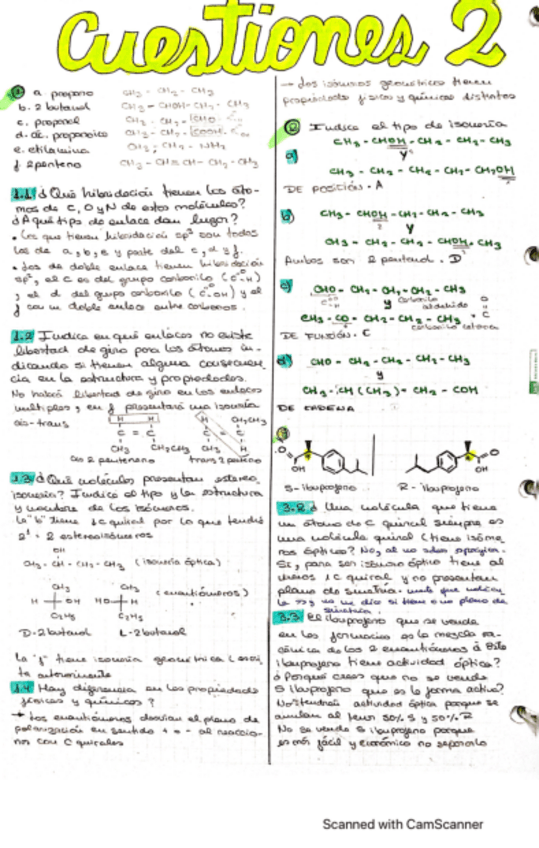 Cuestiones 2
a. propano CH3 - CH2 - CH3
b. 2 butanol CH3 - CHOH - CH2 - CH3
c. propanal CH3 - CH2 - CHO
d. ác. propanoico CH3 - CH2 - COOH
e. etilamina CH3 - CH2 - NH2
f. 2 penteno CH3 - CH = CH - CH2 - CH3
1.1 ¿Qué hibridación tienen los áto-
mos de C, O y N de estas moléculas?
¿A qué tipo de enlace dan lugar?
• Los que tienen hibridación sp3 son todos
los de a, b, e y parte del c, d y f.
• Los de doble enlace tienen hibridación
sp2, el c es del grupo carbonilo
el d del grupo y el
f con un doble enlace entre carbonos.
1.2 Indica en qué enlaces no existe
libertad de giro para los átomos in-
dicando si tienen alguna consecuen-
cia en la estructura y propiedades.
No habrá libertad de giro en los enlaces
múltiples, en f presentará una isomería
cis-trans
H H
C = C
CH3 CH2CH3
cis 2 penteno
H CH2CH3
C = C
CH3 H
trans 2 penteno
1.3 ¿Qué moléculas presentan estereo
isomería? Indica el tipo y la estructura
y nombre de los isómeros.
La "b" tiene 1 C quiral por lo que tendrá
2¹ = 2 estereoisómeros
OH
CH3 - CH - CH2 - CH3 (isomería óptica)
CH3 CH3
H OH HO H (enantiómeros)
C2H5 C2H5
D-2butanol L-2butanol
La "f" tiene isomería geométrica (escri-
ta anteriormente
1.4 Hay diferencia en las propiedades
físicas y químicas?
→ Los enantiómeros desvían el plano de
polarización en sentido + o - al reaccio-
nar con C quirales
→ Los isómeros geométricos tienen
propiedades físicas y químicas distintas
2 Indica el tipo de isomería
a) CH3 - CHOH - CH2 - CH2 - CH3
y
CH3 - CH2 - CH2 - CH2 - CH2OH
DE POSICIÓN. A
b) CH3 - CHOH - CH2 - CH2 - CH3
y
CH3 - CH2 - CH2 - CHOH - CH3
Ambos son 2 pentanol. D
c) CHO - CH2 - CH2 - CH2 - CH3
y carbonilo aldehido
CH3 - CO - CH2 - CH2 - CH3
carbonilo cetona
DE FUNCIÓN. C
d) CHO - CH2 - CH2 - CH2 - CH3
y
CH3 - CH (CH3) - CH2 - COH
DE CADENA
3
O OH OH O
S-ibuprofeno R-ibuprofeno
3.2 ¿Una molécula que tiene
un átomo de C quiral siempre es
una molécula quiral (tiene isóme-
ros ópticos)? No, al
Sí, para ser isómero óptico tiene al
menos 1 C quiral y no presentan
plano de simetría.
si tiene un plano de
simetría.
3.3 El ibuprofeno que se vende
en las farmacias es la mezcla ra-
cémica de los 2 enantiómeros ¿Este
ibuprofeno tiene actividad óptica?
¿Porqué crees que no se vende
S ibuprofeno que es la forma activa?
No tendrá actividad óptica porque se
anulan al tener 50% S y 50% R
No se vende S ibuprofeno porque
es más fácil y económico no separarlo
Scanned with CamScanner